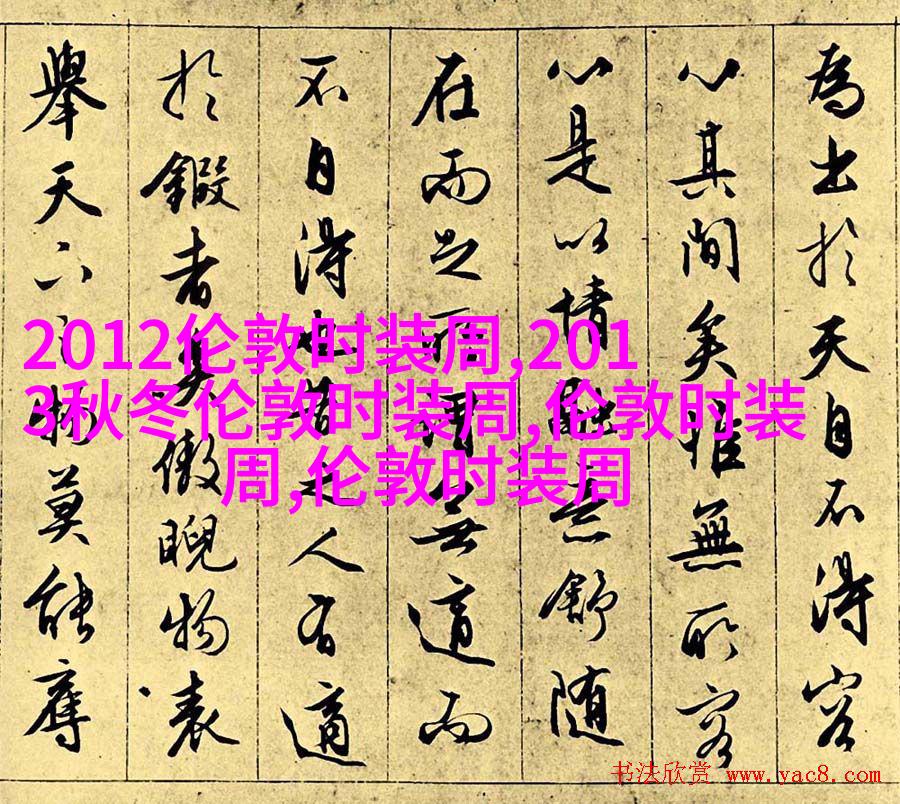 為出於天自不得容
心其間矣惟無所容
心是以情融意舒随
在而之所謂無適而
不自得也昔之人有適
於鍜者傲睨物表
舉天下之物莫能
2012伦敦时装周,201
3秋冬伦敦时装周,伦敦时装
周,伦敦时装周
书法欣赏 www.yac8.com